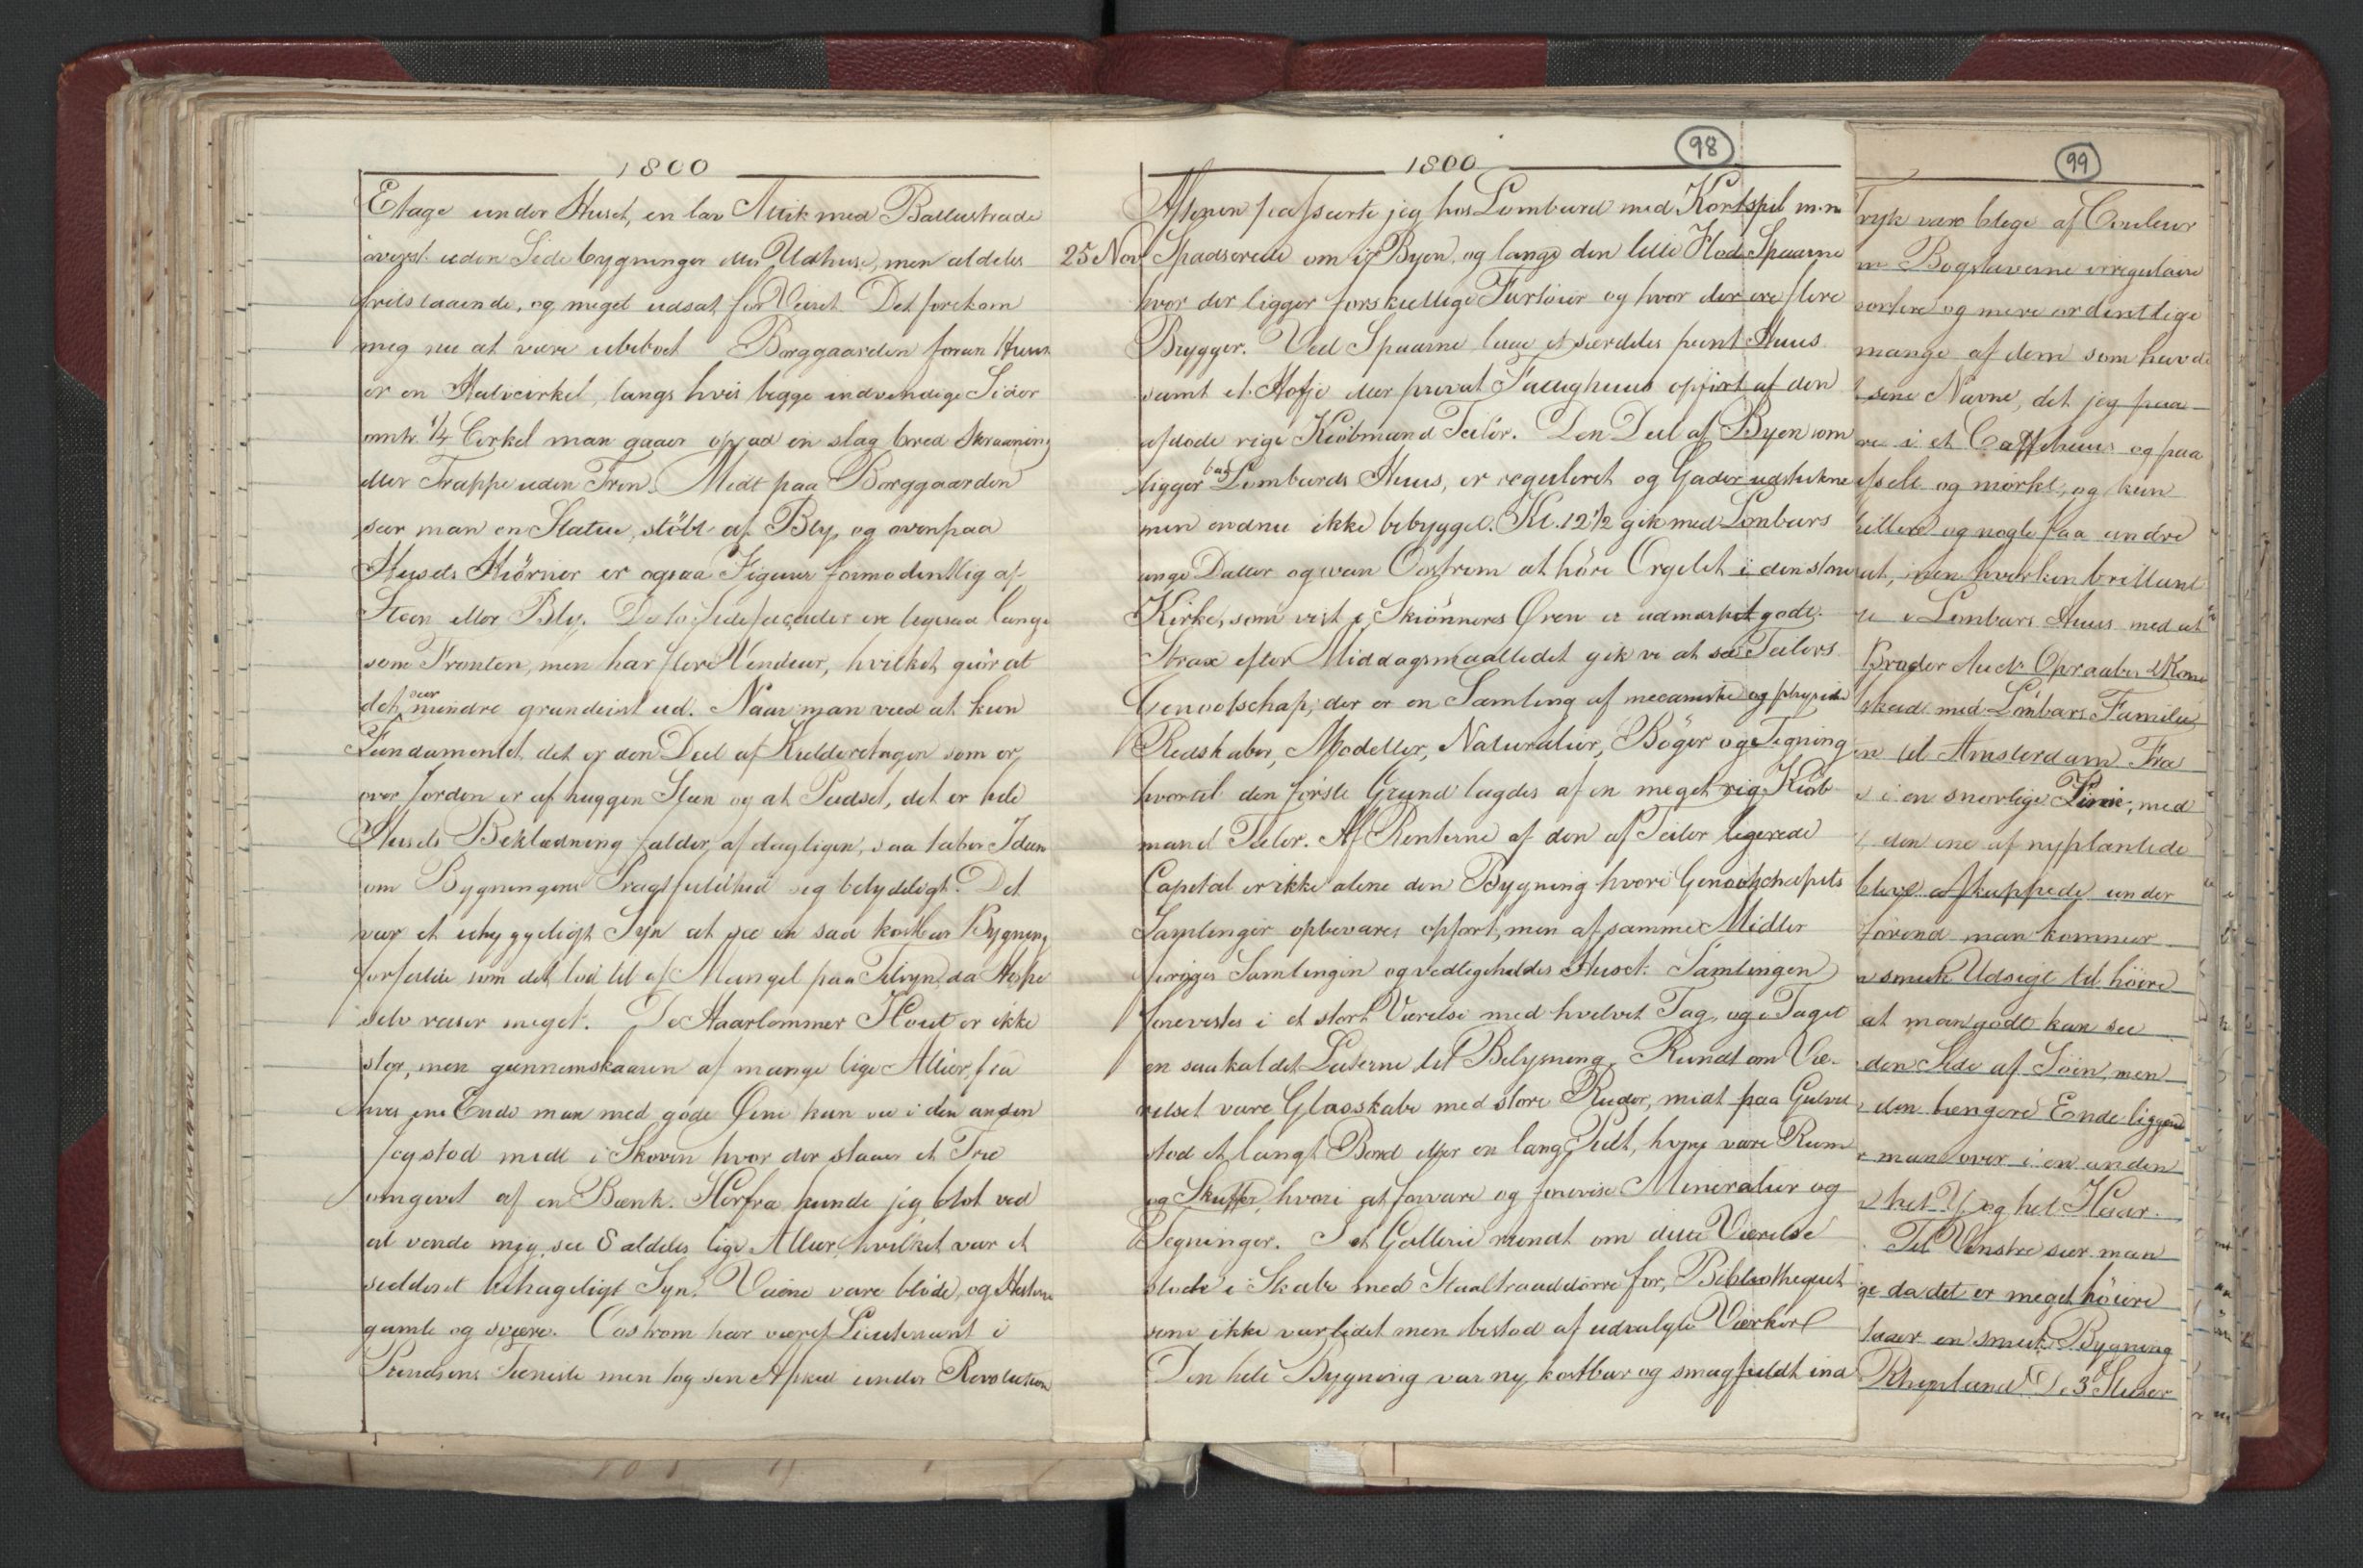 1800
Etage under Huset, en lav Attik med Ballustrade
överst uden Sidebygninger eller Udhuse, men aldeles
fritstaaende, og meget udsat for Veiret. Det forekom
mig nu at være ubeboet Borggaarden foran Huset
er en Halvcirkel, langs hvis begge indvendige Sider
omtr. 1/4 Cirkel man gaaer opad en slag bred Skraaning
eller Trappe uden Trin. Midt paa Borggaarden
seer man en Statue, stöbt af Bly, og ovenpaa
Husets Hiörner er ogsaa Figurer formodentlig af
Steen eller Bly. De to Sidefaçader ere ligesaa lange
som Fronten, men har flere Vinduer, hvilket giör at
det seer mindre grandeust ud. Naar man veed at kun
Fundamentet det er den Deel af Kielderetagen som er
over Jorden er af huggen Steen og at Pudset, det er hele
Husets Beklædning falder af dagligen, saa taber Ideen
om Bygningens Pragtfuldhed sig betydeligt. Det
var et uhyggeligt Syn at see en saa kostbar Bygning
forfalde som det lod til af Mangel paa Tilsyn, da Hope
selv reiser meget. De Haarlemmer Hout er ikke
stor, men giennemskaaren af mange lige Alleer, fra
hvis ene Ende man med gode Öine kan see i den anden
Jeg stod midt i Skoven hvor der staaer et Træ
omgivet af en Bænk. Herfra kunde jeg blot ved
at vende mig, see 8 aldeles lige Alleer, hvilket var et
sieldent behageligt Syn. Veiene vare bløde, og Hestene
gamle og svære. Oostrom har været Lieutenant i
Prindsens Tieneste men tog sin Afsked under Revolution
1800
98
Aftenen passerte jeg hos Lombard med Kortspil m.m
25 Nov Spadserede om i Byen, og langs den lille Flod Spaarne
hvor der ligger forskiellige Fartöier og hvor der ere flere
Brygger. Ved Spaarne laae et særdeles peent Huus
samt et Hofje eller privat Fattighuus opfört af den
afdøde rige Kiöbmand Teiler. Den Deel af Byen som
ligger bag Lombards Huus, er reguleret og Gader udstukne
men endnu ikke bebygget. Kl. 12 1/2 gik med Lombars
unge Datter og van Oostrom at höre Orgelet i den store
Kirke, som vist i Skiönneres Øren er udmærket godt.
Strax efter Middagsmaaltidet gik vi at see Teilers
Genootschap, der er en Samling af mecaniske og physiske
Redskaber, Modeller, Naturalier, Böger og Tegning
hvortil den förste Grund lagdes af en meget rig Kiöb
mand Teiler. Af Renterne af den af Teiler legerede
Capital er ikke alene den Bygning hvori Genootschapets
Samlinger opbevares opfört, men af samme Midler
foröges Samlingen og vedligeholdes Huset. Samlingen
forevistes i et stort Værelse med hvelvet Tag, og i Taget
en saakaldet Lanterne til Belysning. Rundt om Væ-
relset vare Glasskabe med store Ruder, midt paa Gulvet
stod et langt Bord eller en lang Pult, hvori vare Rum
og Skuffer, hvori at forvare og forevise Mineralier og
Tegninger. I et Gallerie rundt om dette Værelse
stode i Skabe med Staaltraaddörre for, Bibliothequet
som ikke var lidet men bestod af udvalgte Værker
Den hele Bygning var ny, kostbar og smagfuldt ind
99
Tryk vare blege af Couleur
Bogstaverne irregulaire
sortere og mere ordentlige
mange af dem som havde
sine Navne, det jeg paa
i et Caffehuus og paa
og mørkt, og kun
og nogle faa andre
at, men hverken brillant
i Lombars Huus med at
Broder
med Lombars Familie
til Amsterdam Fra
i en snorlige Linie, med
den ene af nyplantede
bleve afkappede under
förend man kommer
smuk Udsigt til höire
at man godt kan see
den Side af Söen, men
den længere Ende ligger
man over i en anden
het Y og het Haar.
Til Venstre seer man
ge da det er meget höiere
taaer en smuk Bygning
Rhynland De 3 Sluser